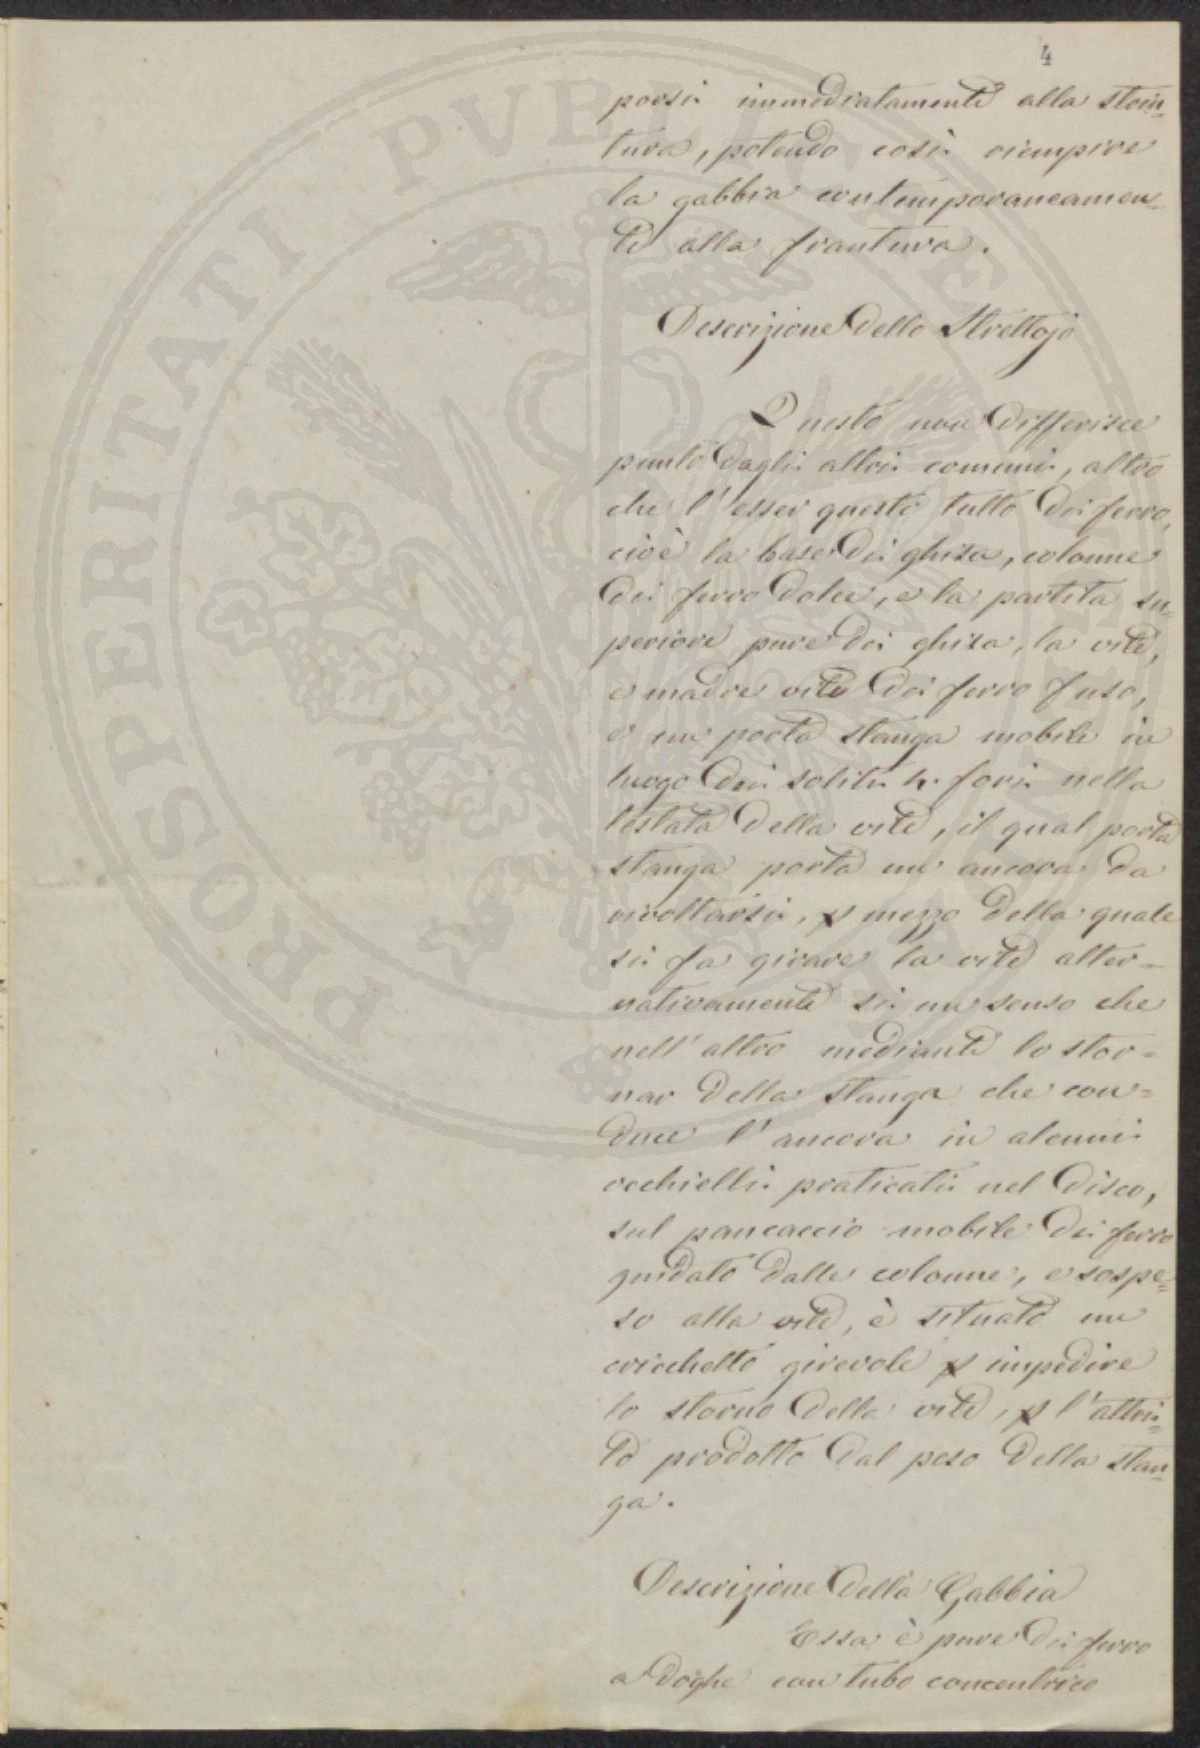 4
porsi immediatamente alla strin=
tura, potendo così riempire
la gabbia contemporaneamen=
te alla frantura.
Descrizione dello Strettojo
Questo non differisce
punto dagli altri comuni, altro
che l'esser questo tutto di ferro,
cioè la base di ghisa, colonne
di ferro dolce, e la partita su=
periore pure di ghisa, la vite,
e madre vite di ferro fuso,
e un porta stanga mobile in
luogo dei soliti 4 fori nella
testata della vite, il qual porta
stanga porta un ancora da
rivoltarsi, p mezzo della quale
si fa girare la vite alter=
nativamente si un senso che
nell'altro mediante lo stor=
nar della stanga che con=
duce l'ancora in alcuni
occhielli praticati nel disco,
sul pancaccio mobile di ferro
guidato dalle colonne, e sospe=
so alla vite, è situato un
cricchetto girevole p impedire
lo storno della vite, p l'attri=
to prodotto dal peso della stan=
ga.
Descrizione della Gabbia
Essa è pure di ferro
a doghe con tubo concentrico
PROSPERITATI PVBLICAE